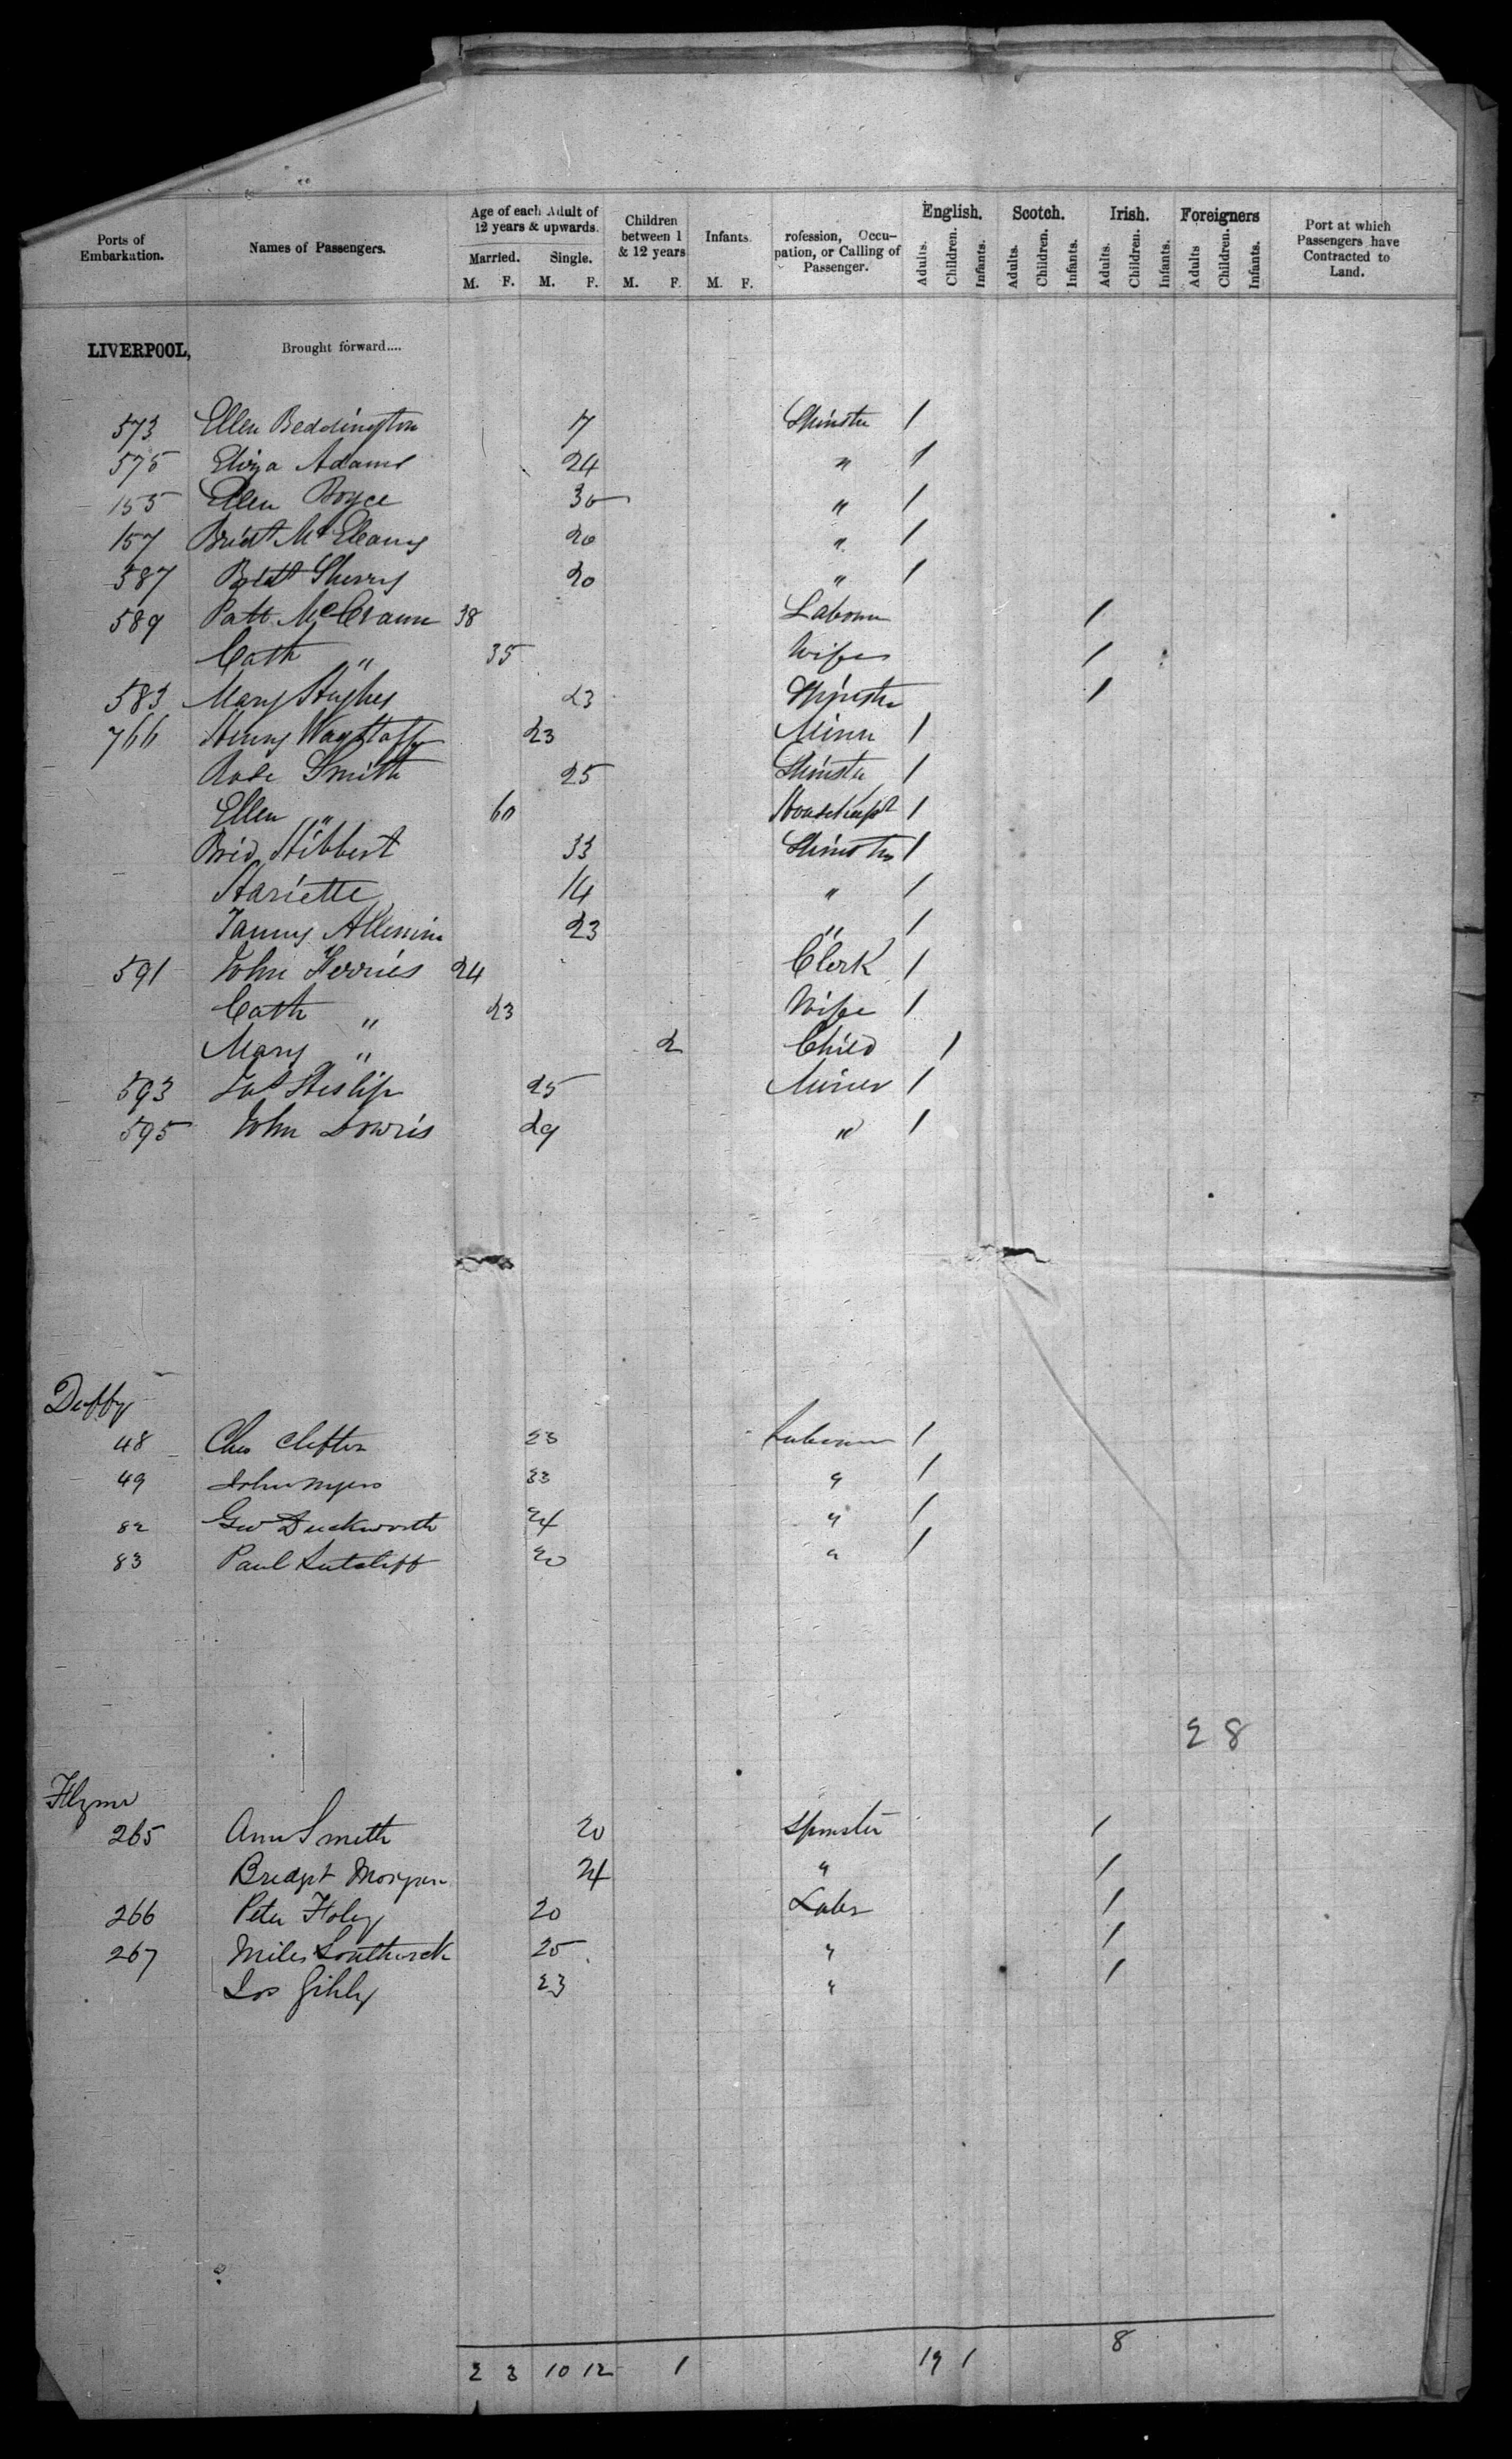 Ports of Embarkation. Names of Passengers. Age of each Adult of 12 years & upwards. Children between 1 & 12 years Infants. rofession, Occupation, or Calling of Passenger. English. Scotch. Irish. Foreigners Port at which Passengers have Contracted to Land.
Married. Single.
M. F. M. F. M. F. M. F. Adults. Children. Infants. Adults. Children. Infants. Adults. Children. Infants. Adults Children. Infants.
LIVERPOOL, Brought forward....
573 Ellen Beddington 17 Spinster 1
575 Eliza Adams 24 " 1
155 Ellen Boyce 30 " 1
157 Bridt 20 " 1
587 Bridt Sherry 20 " 1
589 Patt 38 Labourer 1
Cath " 35 Wife 1
583 Mary Hughes 23 Spinster 1
766 Henry Wagstaff 23 Miner 1
Rose Smith 25 Spinster 1
Ellen " 60 1
Brid Hibbert 33 Spinster 1
Hariette 14 " 1
23 " 1
591 John 24 Clerk 1
Cath " 23 Wife 1
Mary " 2 Child 1
593 Jas Heslip 25 Miner 1
595 John Dowris 29 " 1
Duffy
48 Chas Clifton 23 Labourer 1
49 John Myers 33 " 1
82 Geo Duckworth 24 " 1
83 Paul Sutcliff 20 " 1
28
Flynn
265 Ann Smith 20 Spinster 1
Bridget Morgan 24 " 1
266 Peter Foley 20 Labr 1
267 Miles 25 " 1
Jos 23 " 1
2 3 10 12 1 19 1 8